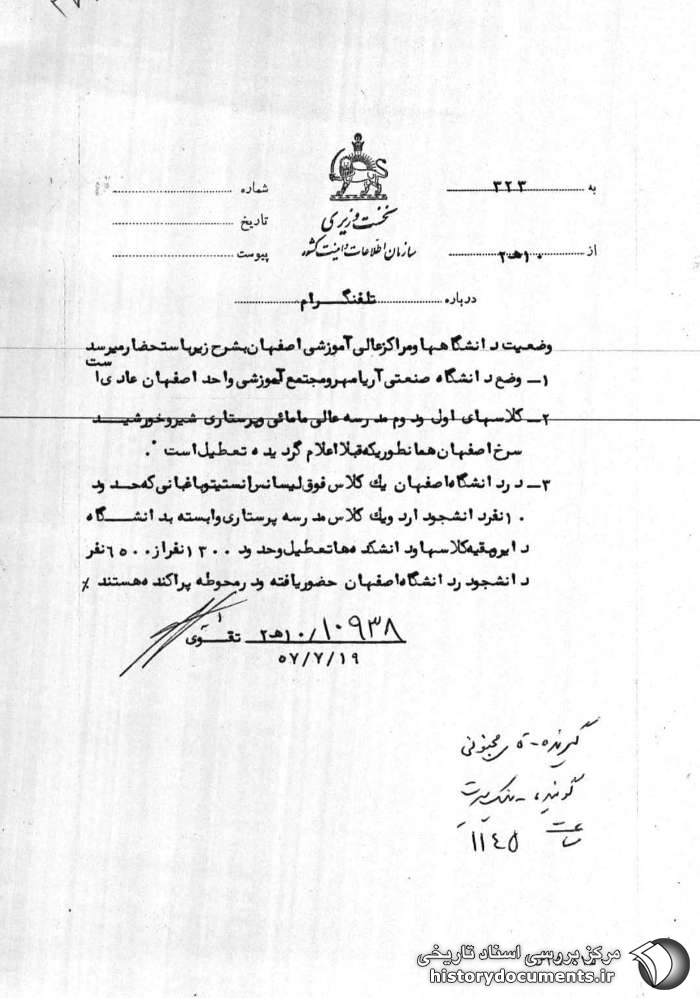 به ۳۲۳
شماره
نخست وزیری
تاریخ
سازمان اطلاعات و امنیت کشور
از ۱۰ هـ ۲
پیوست
درباره تلفنگرام
وضعیت دانشگاهها و مراکز عالی آموزشی اصفهان بشرح زیر باستحضار میرسد
۱ـ وضع دانشگاه صنعتی آریامهر و مجتمع آموزشی واحد اصفهان عادی است
۲ـ کلاسهای اول و دوم مدرسه عالی مامائی و پرستاری شیر و خورشید
سرخ اصفهان همانطوریکه قبلا اعلام گردیده تعطیل است .
۳ـ در دانشگاه اصفهان یك کلاس فوق لیسانس انستیتو باغبانی که حدود
۱۰ نفر دانشجو دارد و یك کلاس مدرسه پرستاری وابسته بدانشگاه
دایر و بقیه کلاسها و دانشکده ها تعطیل و حدود ۱۳۰۰ نفر از ۶۵۰۰ نفر
دانشجو در دانشگاه اصفهان حضور یافته و در محوطه پراکنده هستند ٪
۱۰۹۳۸/۱۰ هـ ۲ تقوی
۵۷/۷/۱۹
گیرنده - محبونی
گوینده -
ساعت
۱۱۴۵
مرکز بررسی اسناد تاریخی
historydocuments.ir